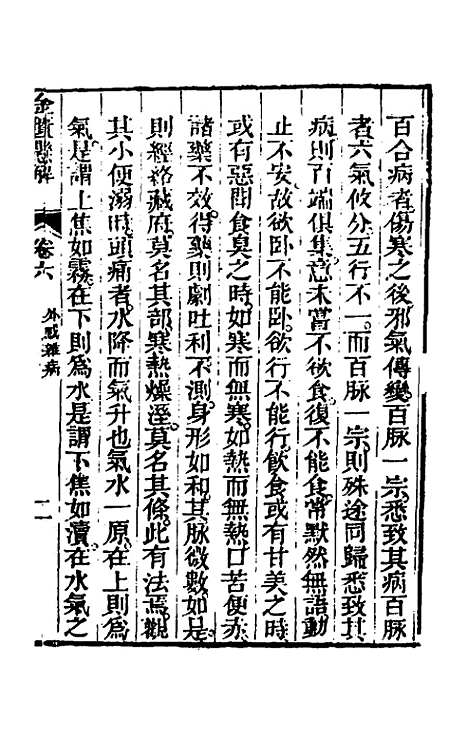 百合病者傷寒之後邪氣傳變百脉一宗悉致其病百脉
者六氣攸分五行不一而百脉一宗則殊途同歸悉致其
病則百端俱集意未嘗不欲食復不能食常默然無語動
止不安故欲卧不能卧欲行不能行飲食或有甘美之時
或有惡聞食臭之時如寒而無寒如熱而無熱口苦便赤
諸藥不效得藥則劇吐利不測身形如和其脉微數如是
則經絡藏府莫名其部寒熱燥溼莫名其條此有法焉觀
其小便溺時頭痛者水降而氣升也氣水一原在上則爲
氣是謂上焦如霧在下則爲水是謂下焦如瀆在水氣之
金匱懸解
卷六
外感雜病